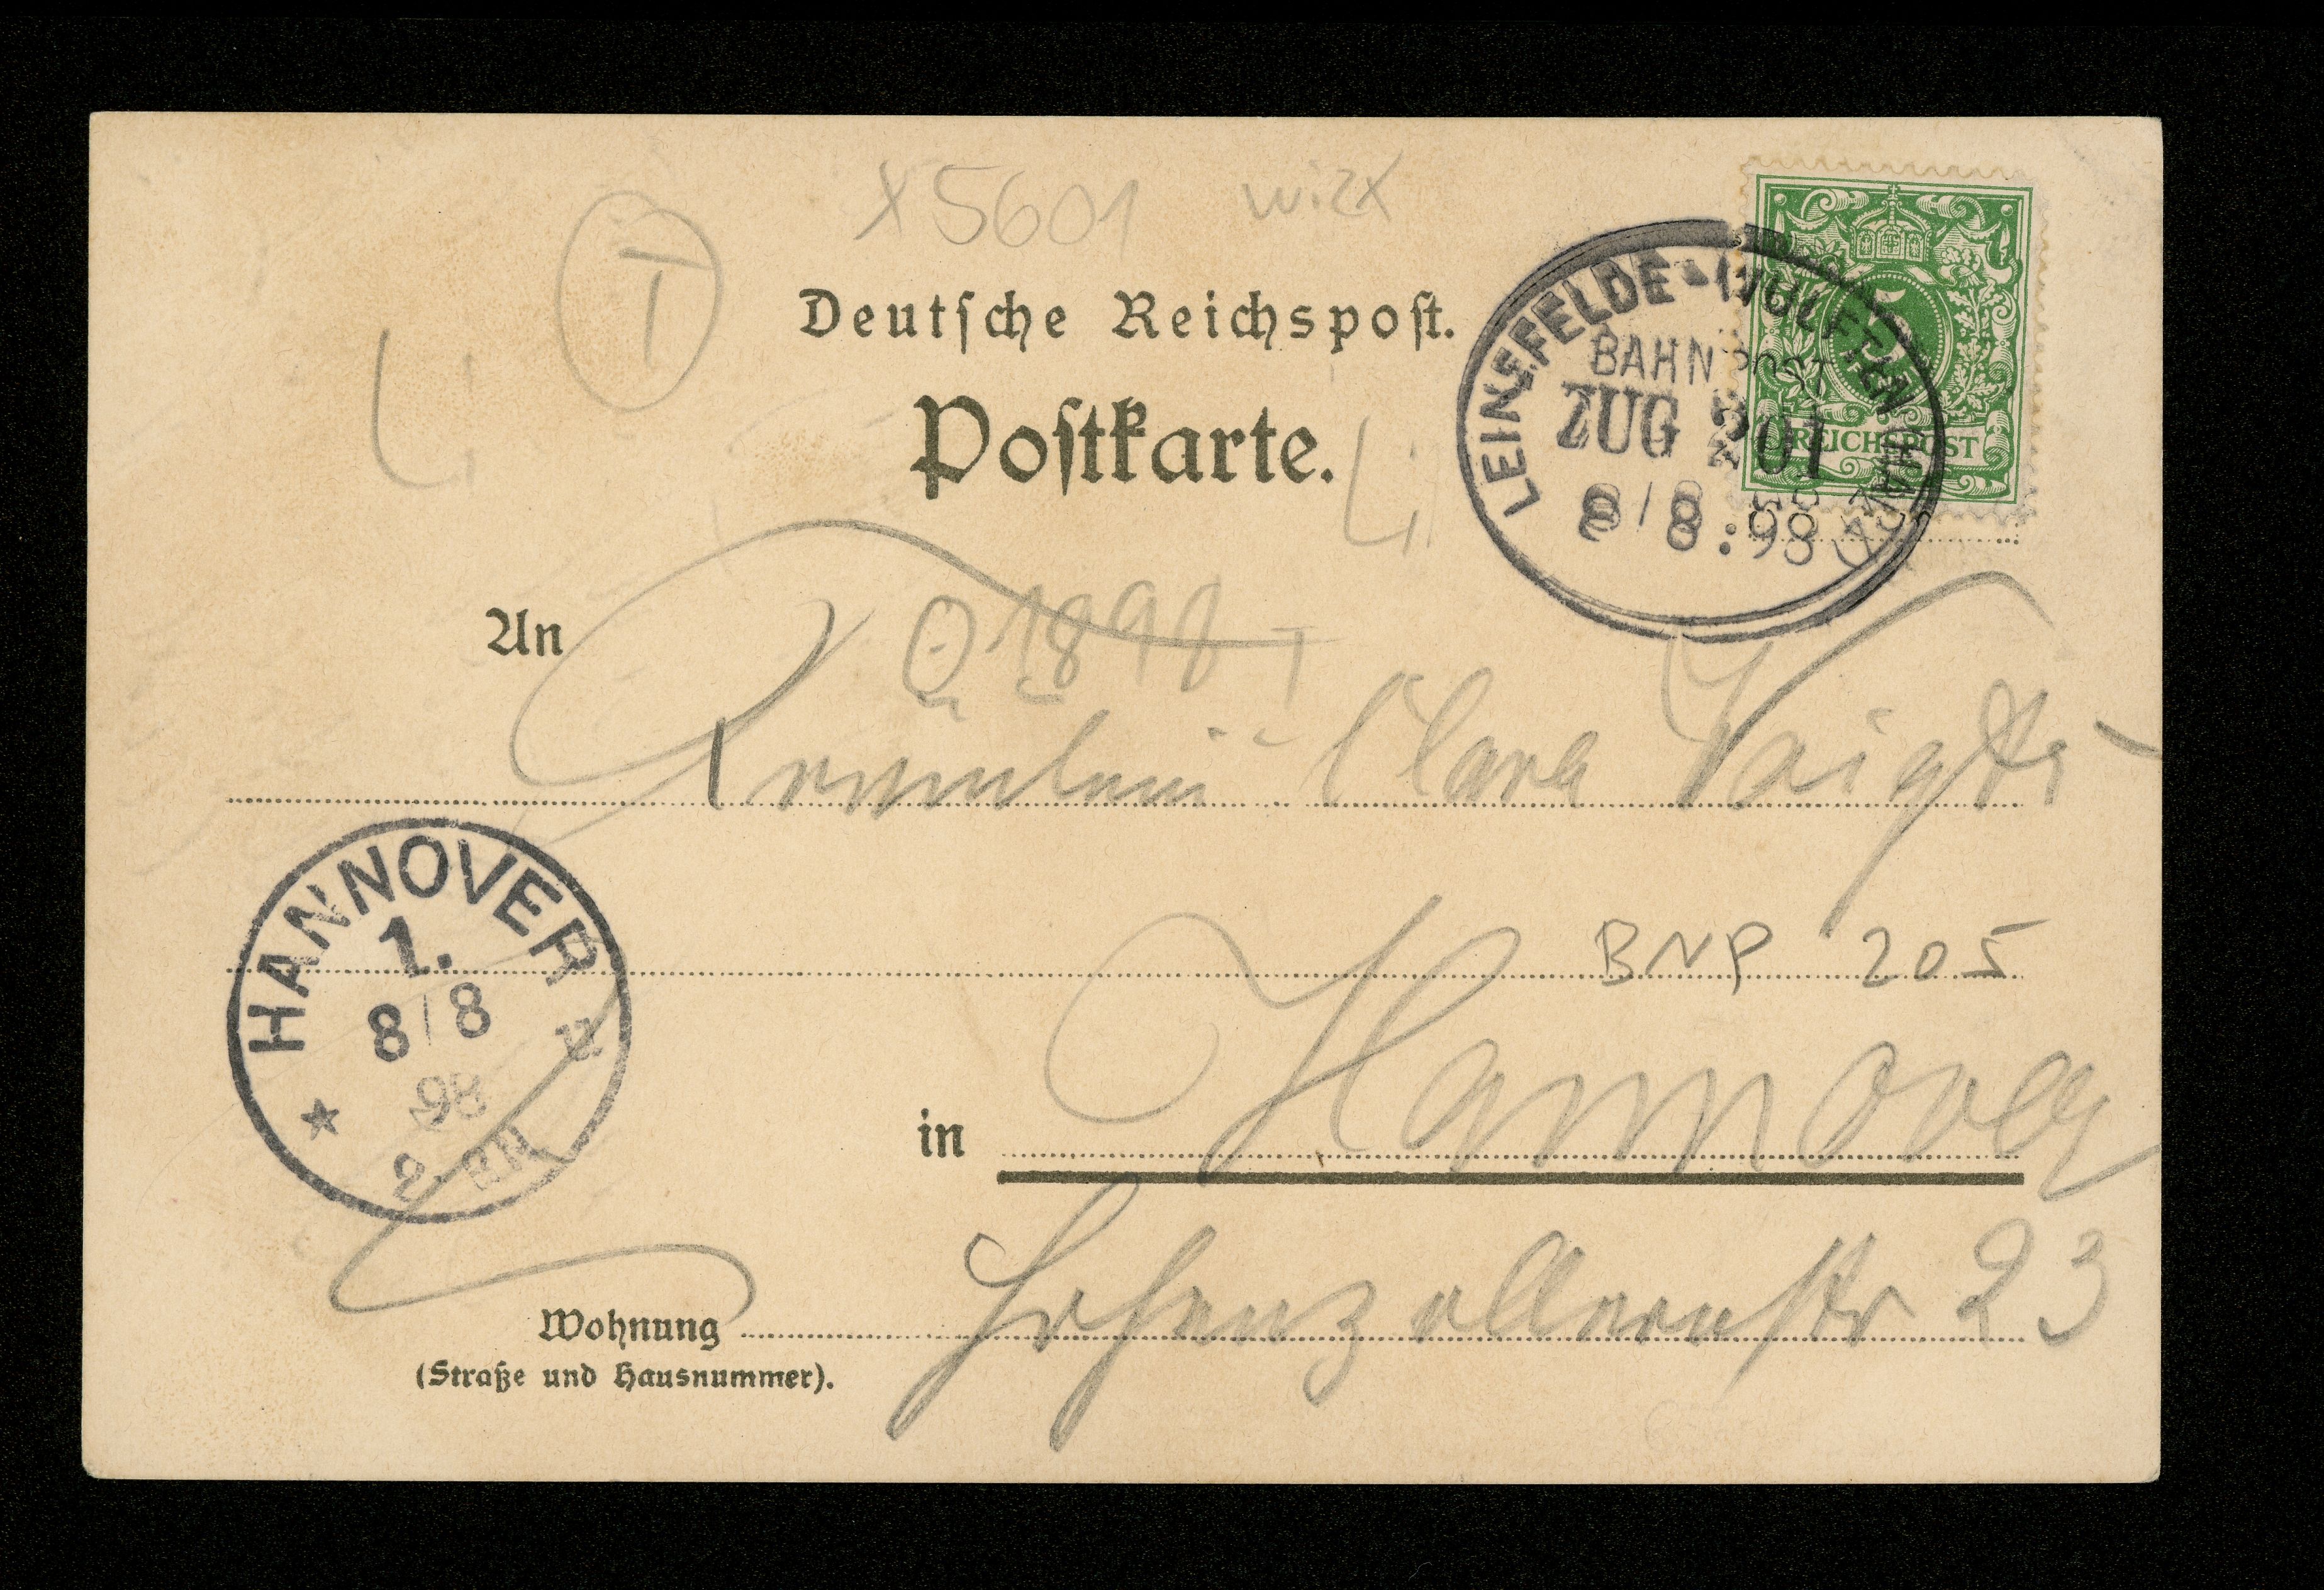 x 5601 wizx
T
Deutsche Reichspost.
Postkarte.
LEINEFELDE-WULFTEN
BAHNPOST
ZUG 201
8/8:98
REICHSPOST
1898
An
Fräulein Clara Voigt
HANNOVER
1.
8/8
98
BNP 205
in Hannover
Wohnung Hohenzollernstr 23
(Straße und Hausnummer).